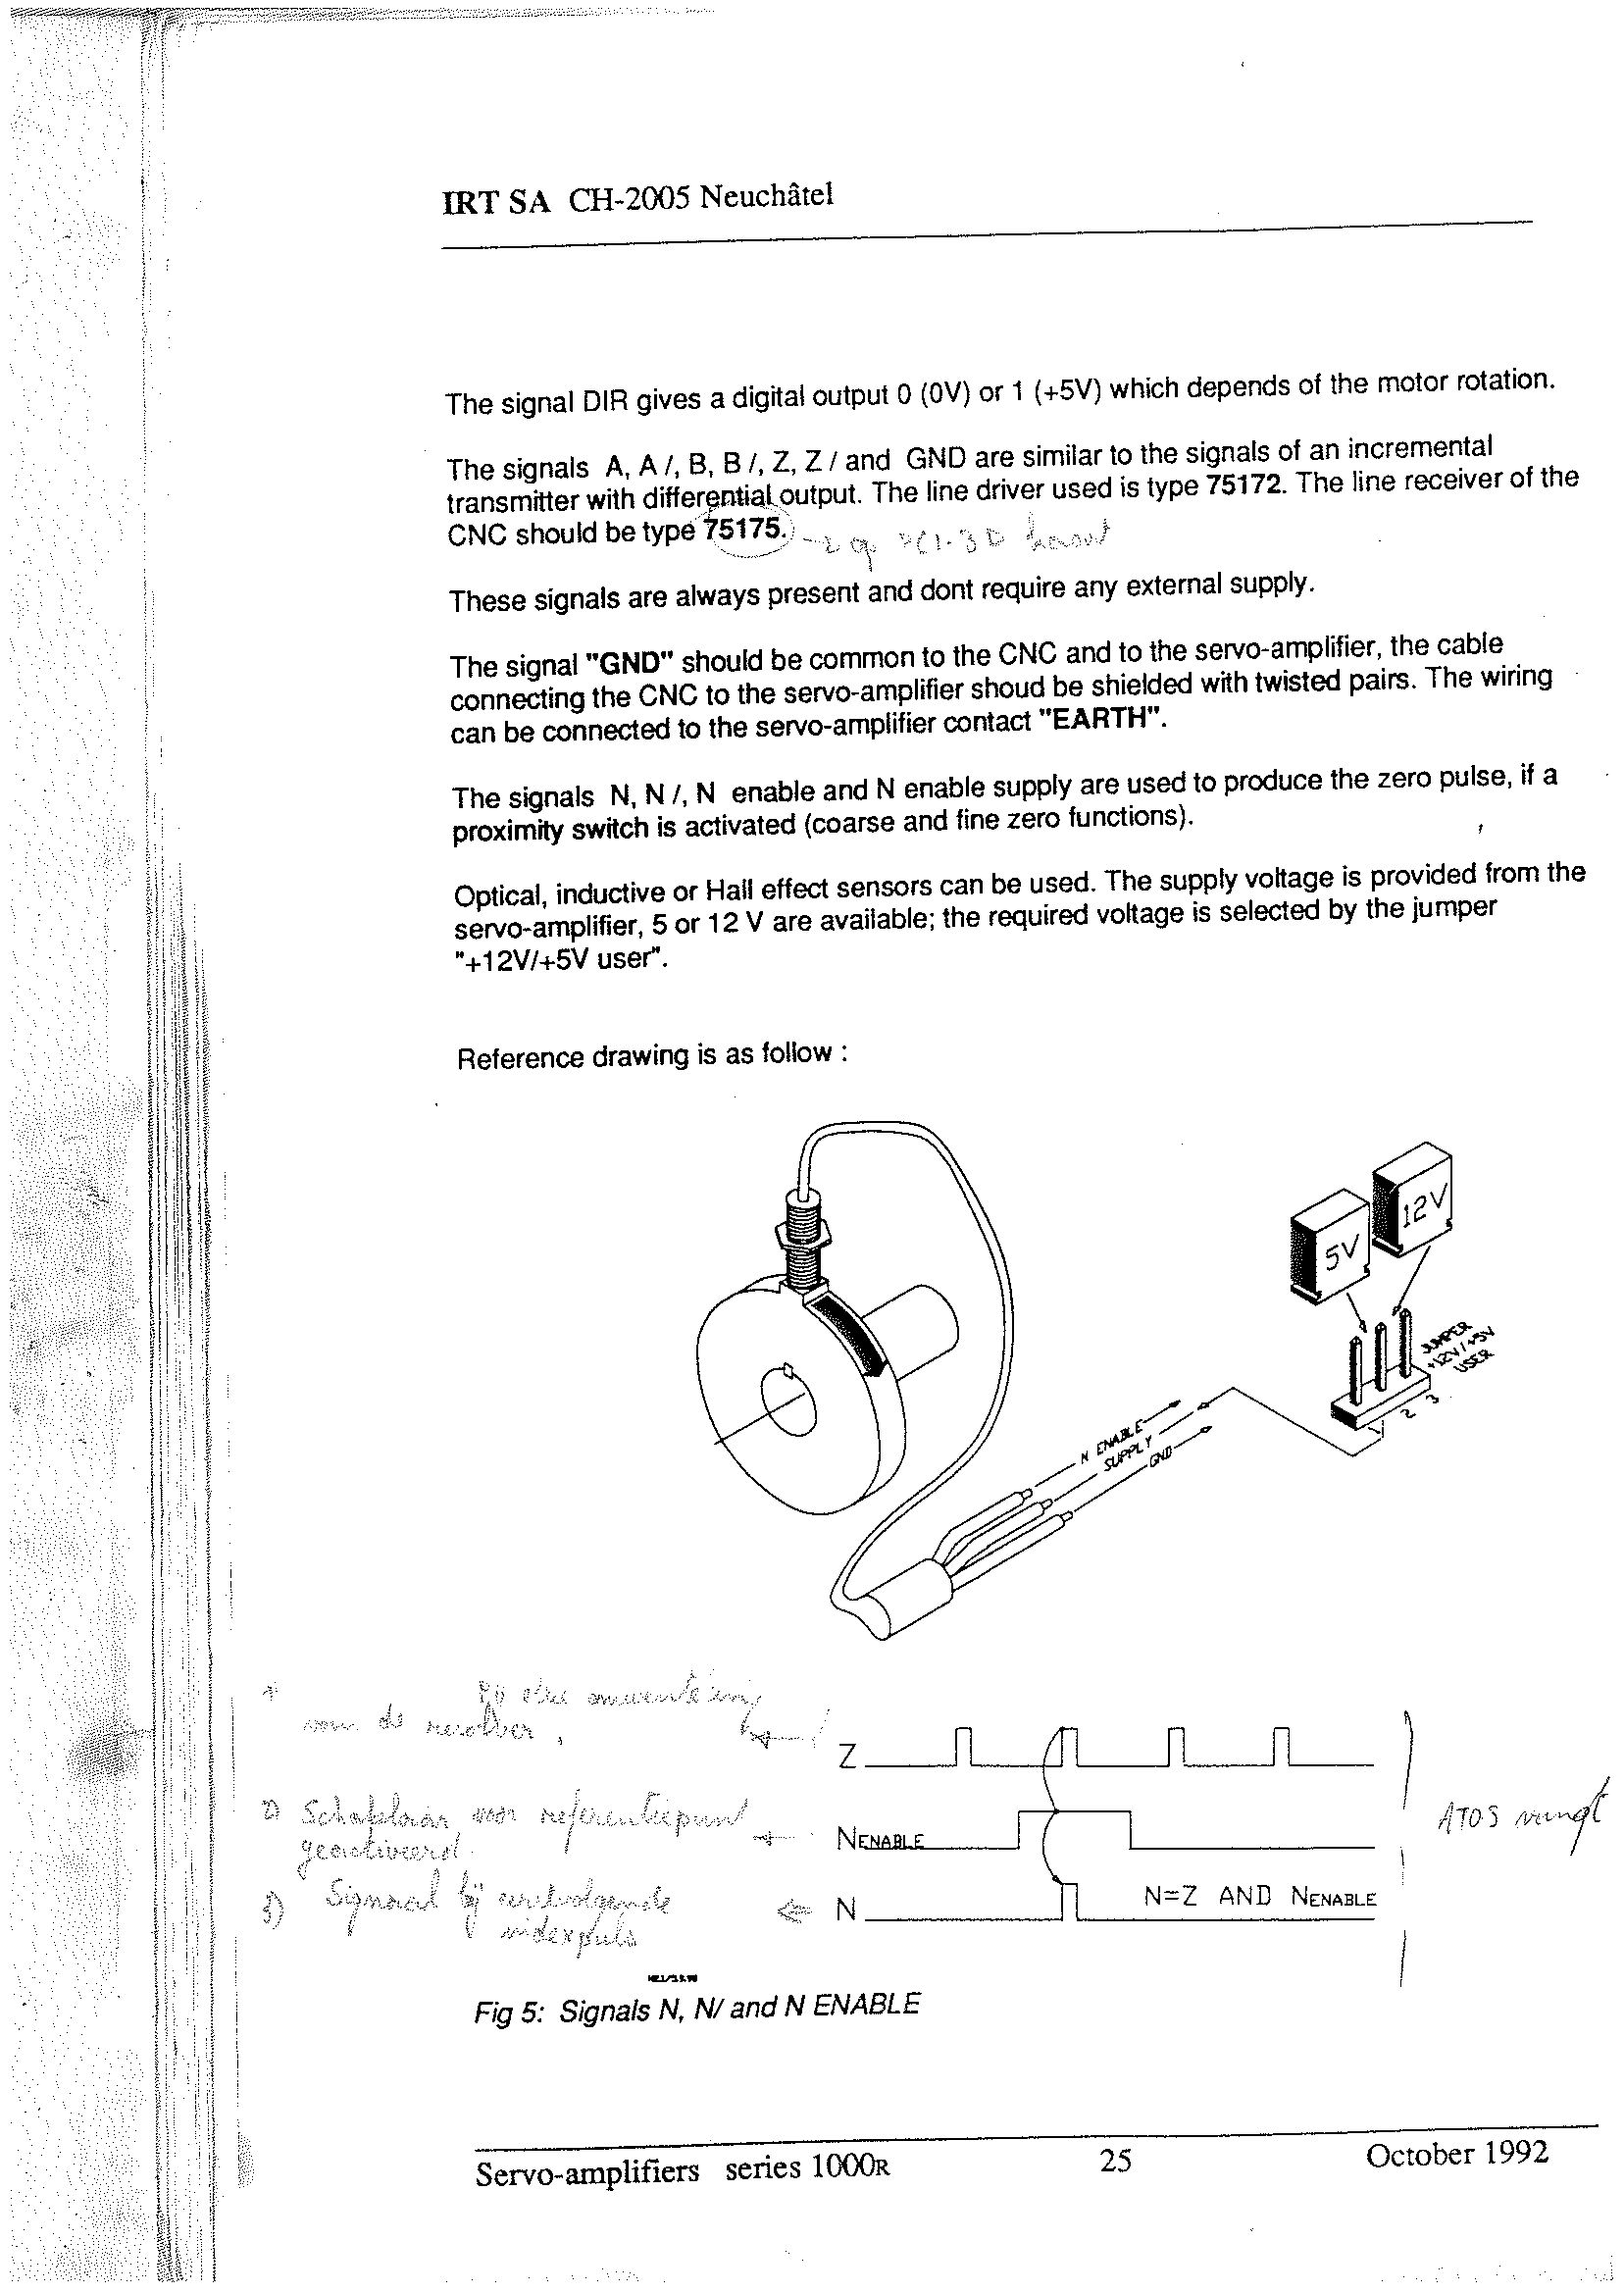 IRT SA CH-2005 Neuchâtel
The signal DIR gives a digital output 0 (0V) or 1 (+5V) which depends of the motor rotation.
The signals A, A /, B, B /, Z, Z / and GND are similar to the signals of an incremental
transmitter with differential output. The line driver used is type 75172. The line receiver of the
CNC should be type 75175. op
These signals are always present and dont require any external supply.
The signal "GND" should be common to the CNC and to the servo-amplifier, the cable
connecting the CNC to the servo-amplifier shoud be shielded with twisted pairs. The wiring
can be connected to the servo-amplifier contact "EARTH".
The signals N, N /, N enable and N enable supply are used to produce the zero pulse, if a
proximity switch is activated (coarse and fine zero functions).
Optical, inductive or Hall effect sensors can be used. The supply voltage is provided from the
servo-amplifier, 5 or 12 V are available; the required voltage is selected by the jumper
"+12V/+5V user".
Reference drawing is as follow :
12V
5V
JUMPER
+12V/+5V
USER
2 3
N ENABLE
SUPPLY
GND
omwenteling
van de revolver,
Z
2) Schakelaar voor referentiepunt
geactiveerd
NENABLE
ATOS
3) Signaal bij
indexpuls
N
N=Z AND NENABLE
Fig 5: Signals N, N/ and N ENABLE
Servo-amplifiers series 1000R
25
October 1992